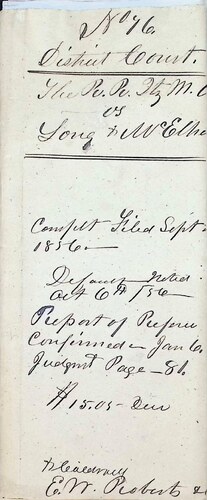 No 76.
District Court.
The P. P. Ptz M. C
vs
Long & McElh
Complt Filed Sept
1856.—
Default Noted
Oct 6th /56
Report of Referee
Confirmed – Jan 6.
Judgmt Page – 86
$15.05 – Due
E. W. Roberts &